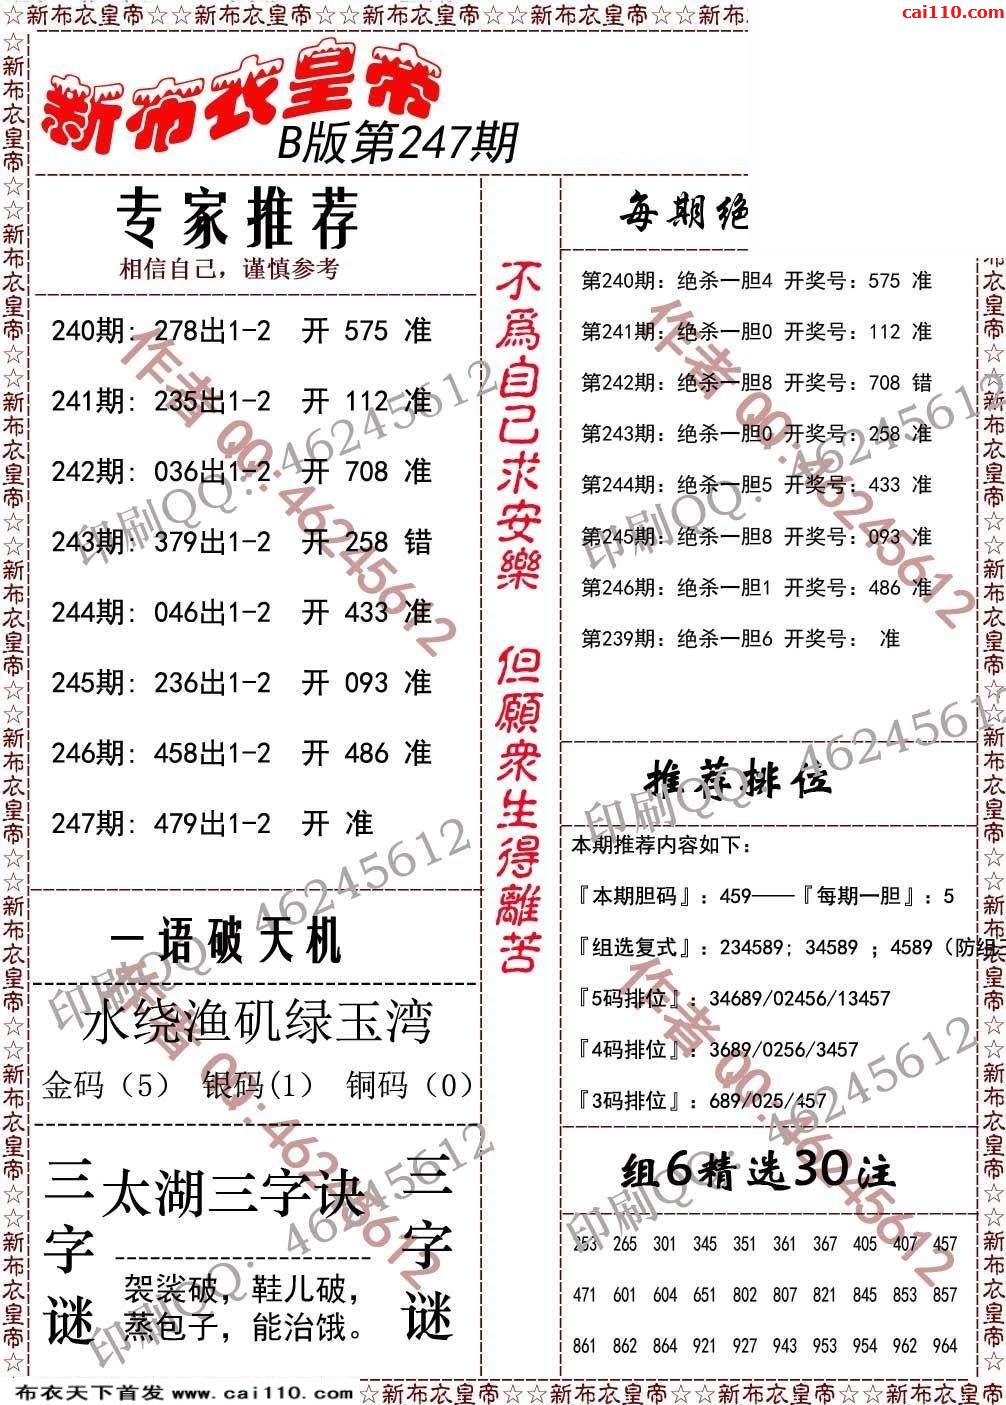 ☆新布衣皇帝☆☆新布衣皇帝☆☆新布衣皇帝☆☆新布衣皇帝☆☆新布
cai110.com
新布衣皇帝
B版第247期
专家推荐
相信自己，谨慎参考
240期: 278出1-2 开 575 准
241期: 235出1-2 开 112 准
242期: 036出1-2 开 708 准
243期: 379出1-2 开 258 错
244期: 046出1-2 开 433 准
245期: 236出1-2 开 093 准
246期: 458出1-2 开 486 准
247期: 479出1-2 开 准
一语破天机
水绕渔矶绿玉湾
金码（5） 银码(1） 铜码（0）
三字谜
太湖三字诀
袈裟破，鞋儿破，
蒸包子，能治饿。
三字谜
不為自己求安樂
但願衆生得離苦
每期绝
第240期: 绝杀一胆4 开奖号: 575 准
第241期: 绝杀一胆0 开奖号: 112 准
第242期: 绝杀一胆8 开奖号: 708 错
第243期: 绝杀一胆0 开奖号: 258 准
第244期: 绝杀一胆5 开奖号: 433 准
第245期: 绝杀一胆8 开奖号: 093 准
第246期: 绝杀一胆1 开奖号: 486 准
第239期: 绝杀一胆6 开奖号: 准
推荐排位
本期推荐内容如下：
『本期胆码』: 459——『每期一胆』: 5
『组选复式』: 234589; 34589 ; 4589（防组
『5码排位』: 34689/02456/13457
『4码排位』: 3689/0256/3457
『3码排位』: 689/025/457
组6精选30注
253 265 301 345 351 361 367 405 407 457
471 601 604 651 802 807 821 845 853 857
861 862 864 921 927 943 953 954 962 964
作者 QQ: 46245612
印刷QQ: 46245612
作者 QQ: 46245612
印刷QQ: 46245612
印刷QQ: 46245612
作者 QQ: 46245612
印刷QQ: 46245612
作者 QQ: 46245612
印刷QQ: 46245612
印刷QQ: 46245612
布衣天下首发 www.cai110.com
☆新布衣皇帝☆☆新布衣皇帝☆☆新布衣皇帝☆☆新布衣皇帝☆